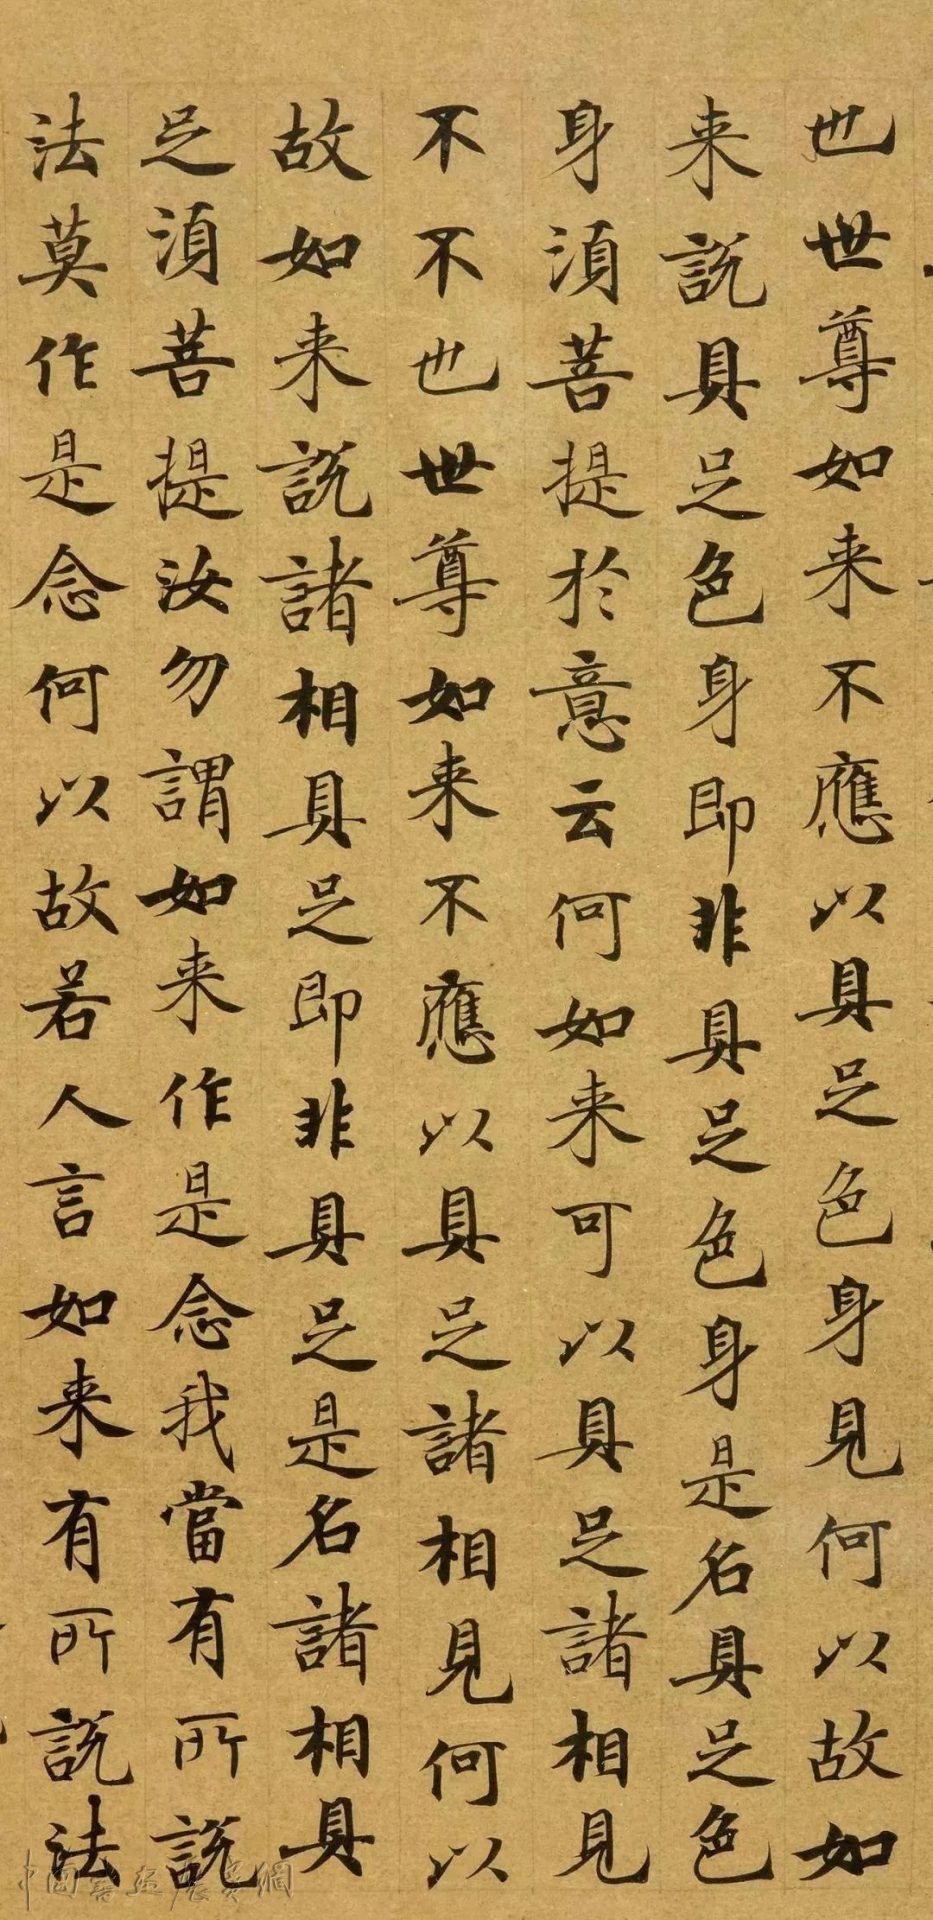 也世尊如来不應以具足色身見何以故如
来說具足色身即非具足色身是名具足色
身湏菩提於意云何如来可以具足諸相見
不不也世尊如来不應以具足諸相見何以
故如来說諸相具足即非具足是名諸相具
足湏菩提汝勿謂如来作是念我當有所說
法莫作是念何以故若人言如来有所說法